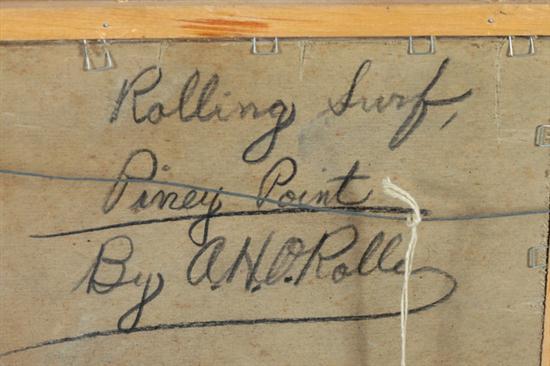 Rolling Surf,
Piney Point
By A.H.O. Rolle